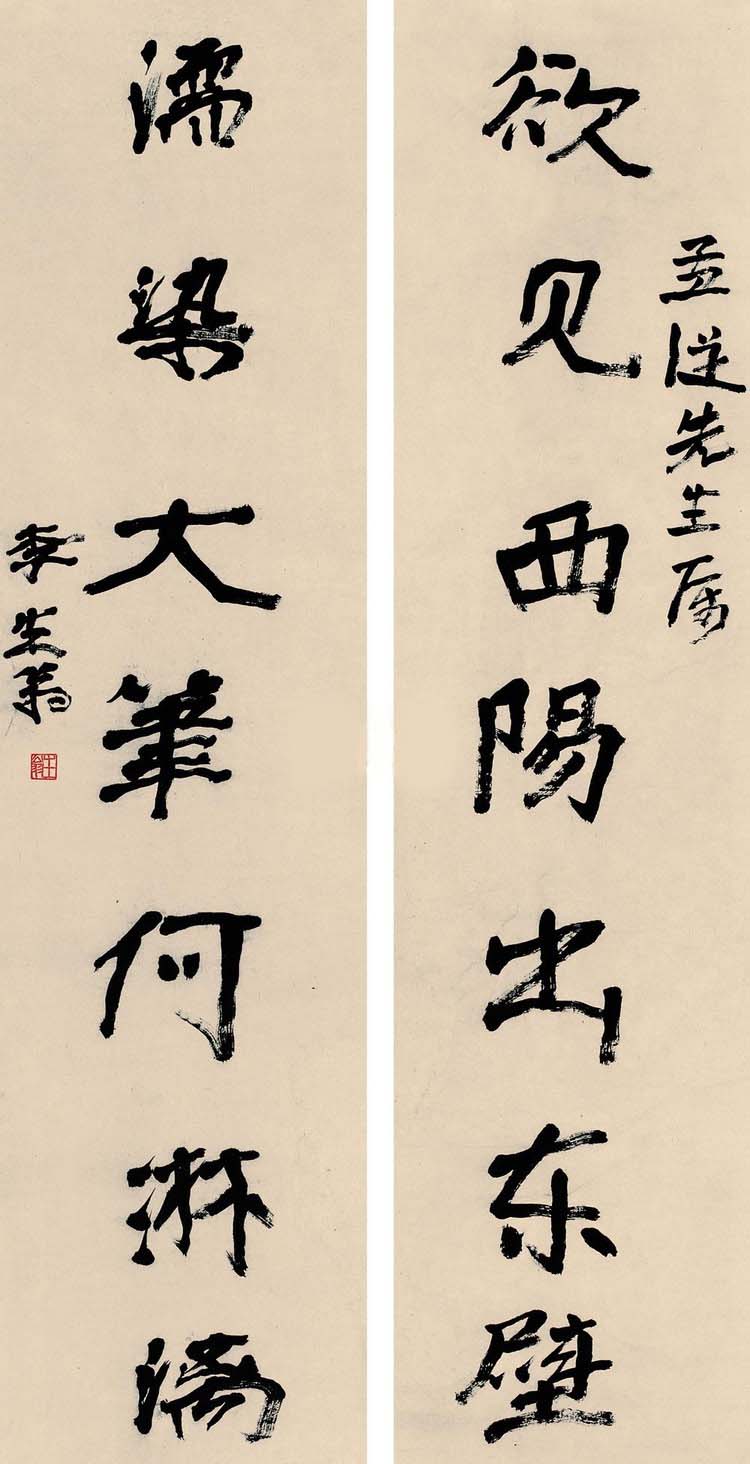 孟從先生属
欲见西陽出东壁
濡染大筆何淋漓
李生翁